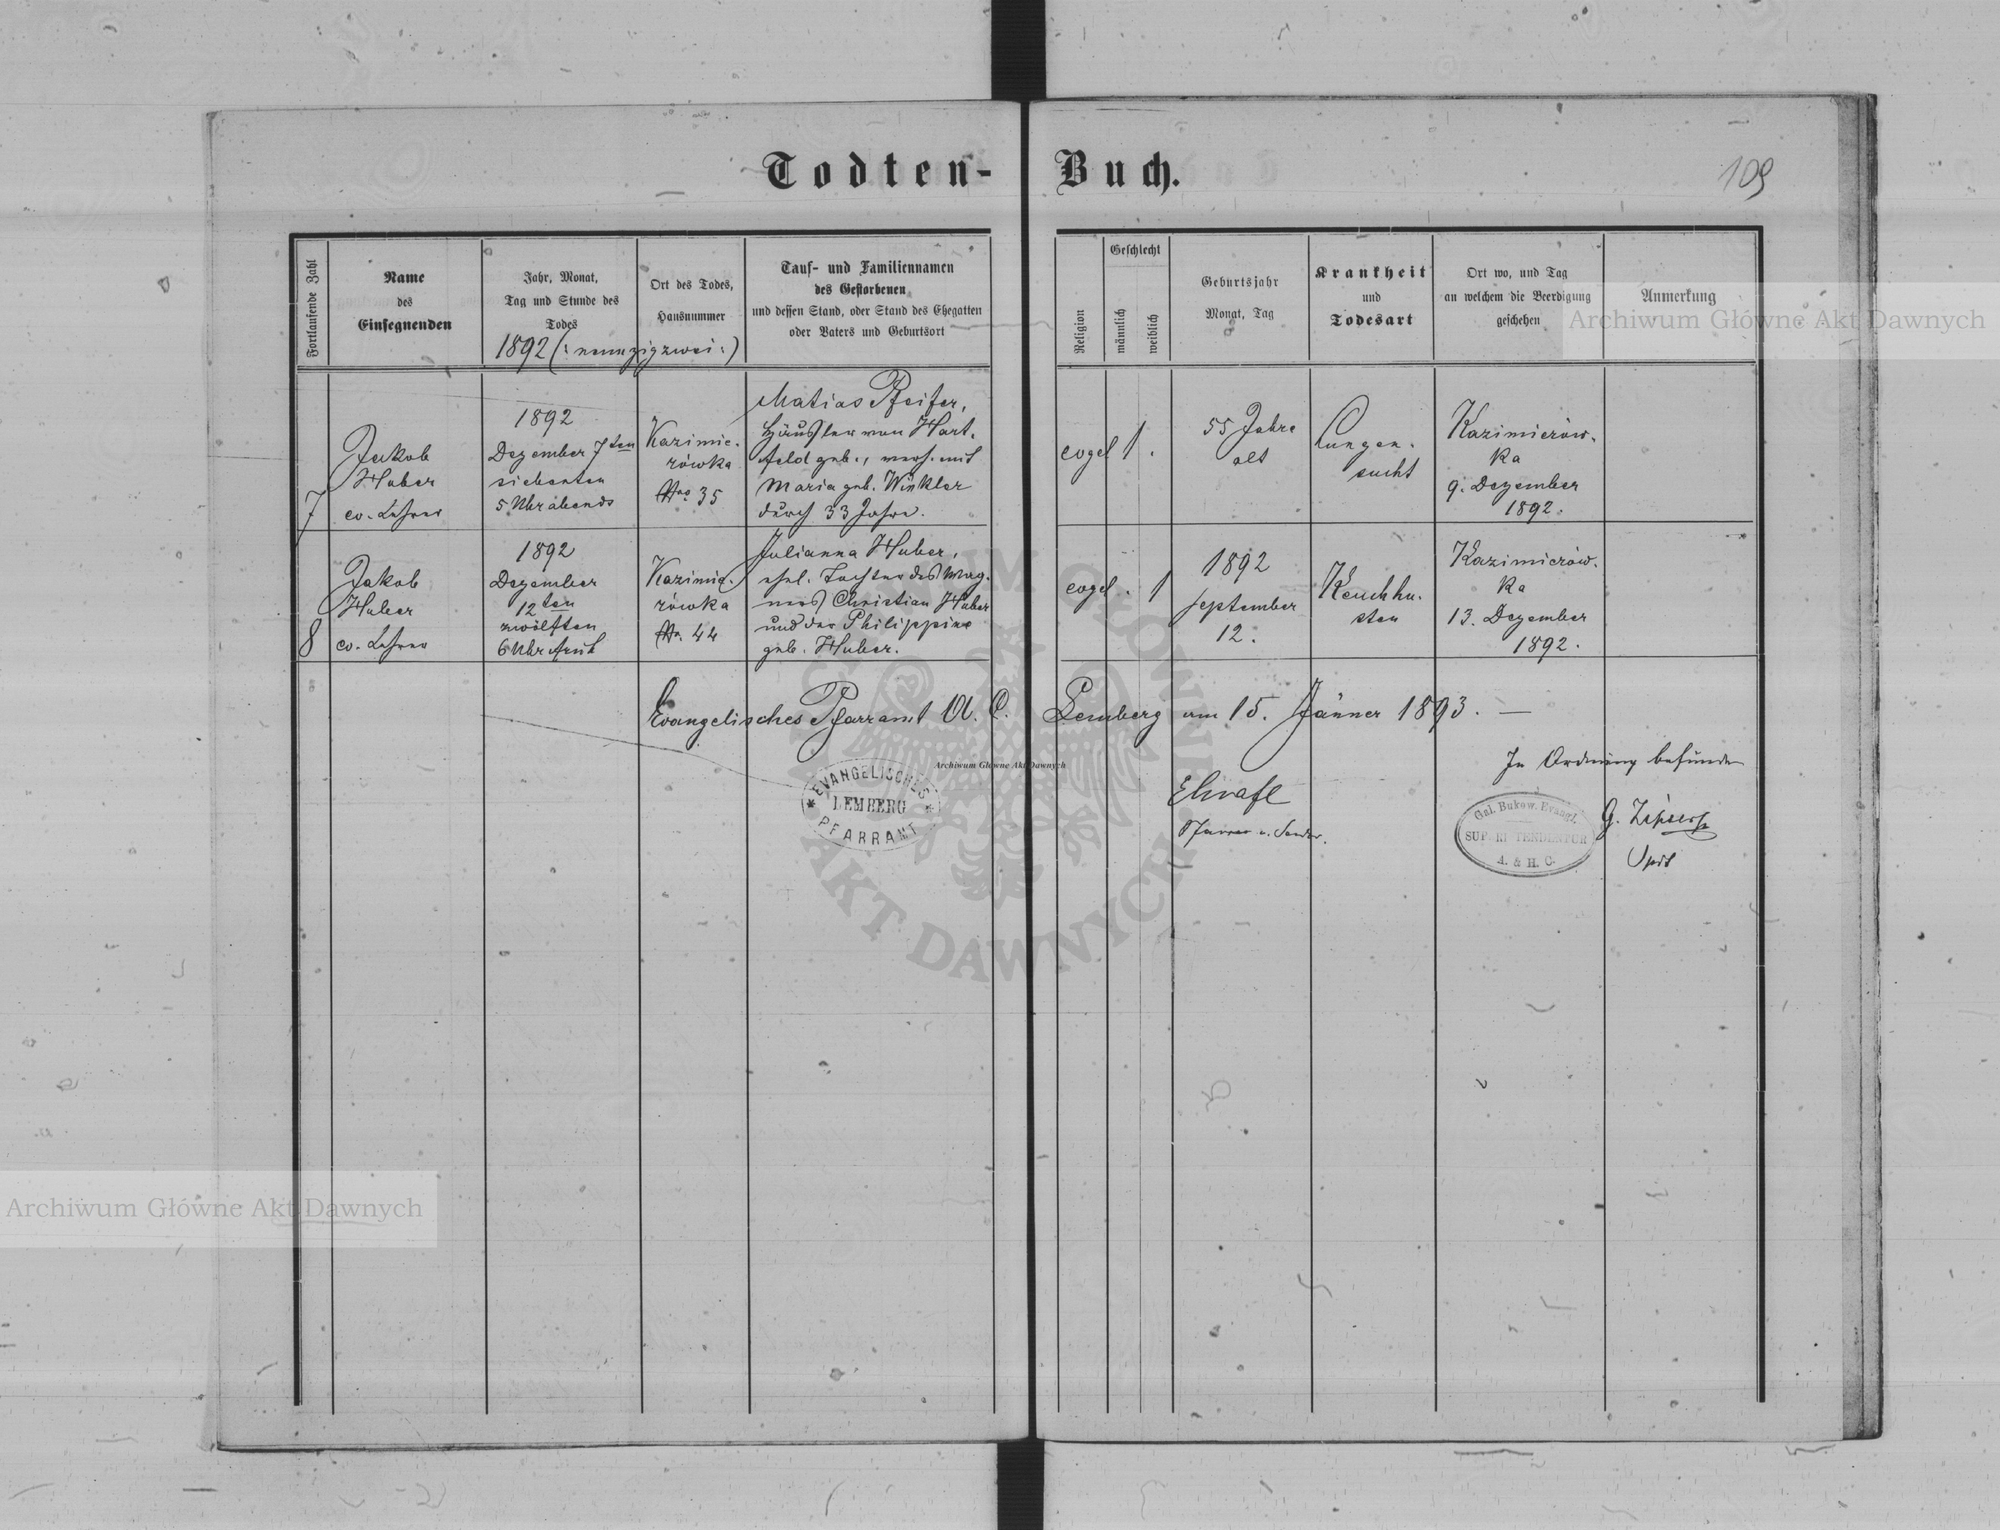 Todten-Buch.
109
Fortlaufende Zahl
Name
des
Einsegnenden
Jahr, Monat,
Tag und Stunde des
Todes
1892 (: neunzigzwei :)
Ort des Todes,
Hausnummer
Tauf- und Familiennamen
des Gestorbenen
und dessen Stand, oder Stand des Ehegatten
oder Vaters und Geburtsort
Religion
Geschlecht
männlich
weiblich
Geburtsjahr
Monat, Tag
Krankheit
und
Todesart
Ort wo, und Tag
an welchem die Beerdigung
geschehen
Anmerkung
7
Jakob
Huber
ev. Lehrer
1892
Dezember 7ten
siebenten
5 Uhr abends
Kazimie-
rówka
Nro 35
Matias Pfeifer,
Häusler von Hart-
feld geb., verh. mit
Maria geb. Winkler
durch 33 Jahre.
evgel
1
.
55 Jahre
alt
Lungen-
sucht
Kazimierów-
ka
9. Dezember
1892.
8
Jakob
Huber
ev. Lehrer
1892
Dezember
12ten
zwölften
6 Uhr früh
Kazimie-
rówka
No. 44
Julianna Huber,
ehel. Tochter des Wag-
ners Christian Huber
und der Philippine
geb. Huber.
evgel
.
1
1892
September
12.
Keuchhu-
sten
Kazimierów-
ka
13. Dezember
1892.
Evangelisches Pfarramt A. C. Lemberg am 15. Jänner 1893. —
EVANGELISCHES
LEMBERG
PFARRAMT
Pfarrer u. Senior.
In Ordnung befunden
Gal. Bukow. Evangl.
SUPERINTENDENTUR
A. & H. C.
G. Zipser
Spdt
Archiwum Główne Akt Dawnych
Archiwum Główne Akt Dawnych
Archiwum Główne Akt Dawnych
ARCHIWUM GŁÓWNE AKT DAWNYCH